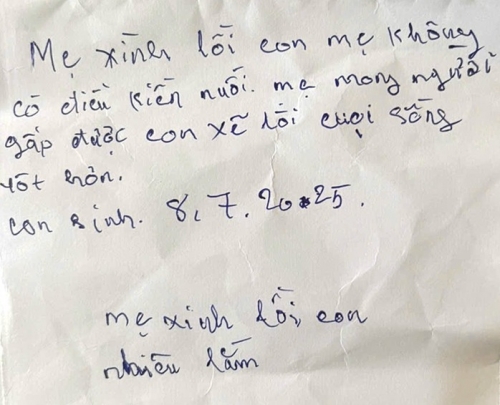 Mẹ xinh lỗi con mẹ không
có điều kiên nuôi. mẹ mong người
gấp được con xẽ lòi cuọi sống
tốt hỏn.
con sinh. 8, 7. 20.25.
mẹ xinh lỗi, con
nhiều lắm